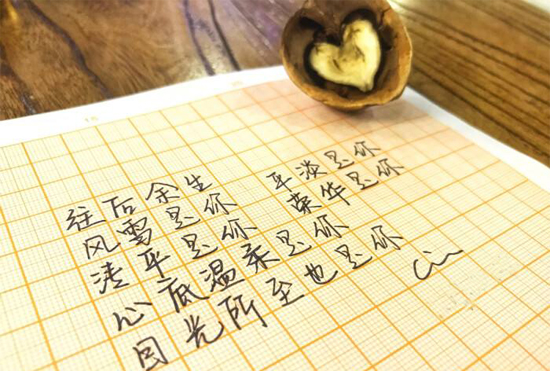 往后余生
风雪是你 平淡是你
清平是你 荣华是你
心底温柔是你
目光所至也是你